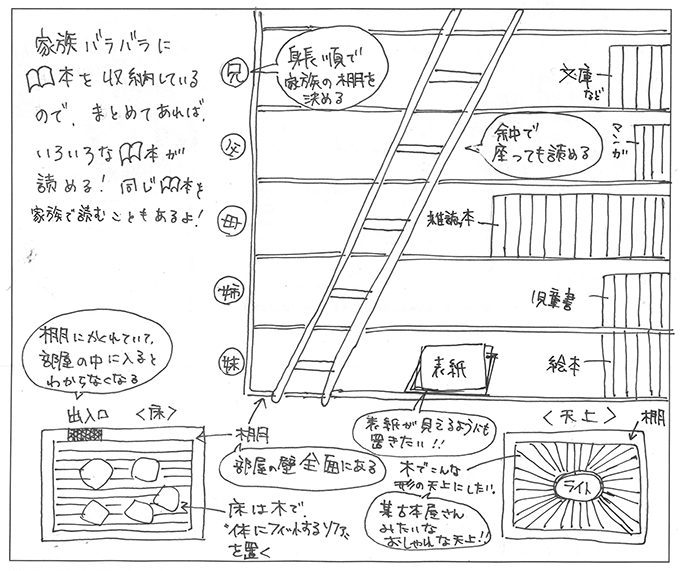 家族バラバラに
本を収納している
ので、まとめてあれば、
いろいろな本が
読める!同じ本を
家族で読むこともあるよ!
兄
父
母
姉
妹
身長順で
家族の棚を
決める
途中で
座っても読める
文庫
など
マンガ
雑誌本
児童書
絵本
表紙
表紙が見えるようにも
置きたい!!
棚にかくれていて、
部屋の中に入ると
わからなくなる
出入口 <床>
棚
部屋の壁全面にある
床は木で、
"体にフィットするソファ"
を置く
<天上>
棚
ライト
木でこんな
形の天上にしたい。
某古本屋さん
みたいな
おしゃれな天上!!